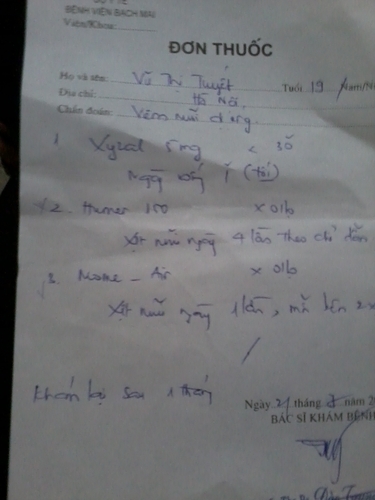 BỘ Y TẾ
BỆNH VIỆN BẠCH MAI
Viện/Khoa:
ĐƠN THUỐC
Họ và tên: Vũ Thị Tuyết Tuổi 19 Nam/N
Địa chỉ: Hà Nội
Chẩn đoán: Viêm mũi dị ứng.
1. Xyzal 5mg x 30
Ngày uống 1 (tối)
2. Humer 150 x 01lọ
Xịt mũi ngày 4 lần theo chỉ dẫn
3. Mome - Air x 01lọ
Xịt mũi ngày 1 lần, mỗi bên 2x
Khám lại sau 1 tháng
Ngày 21 tháng năm 2
BÁC SĨ KHÁM BỆNH